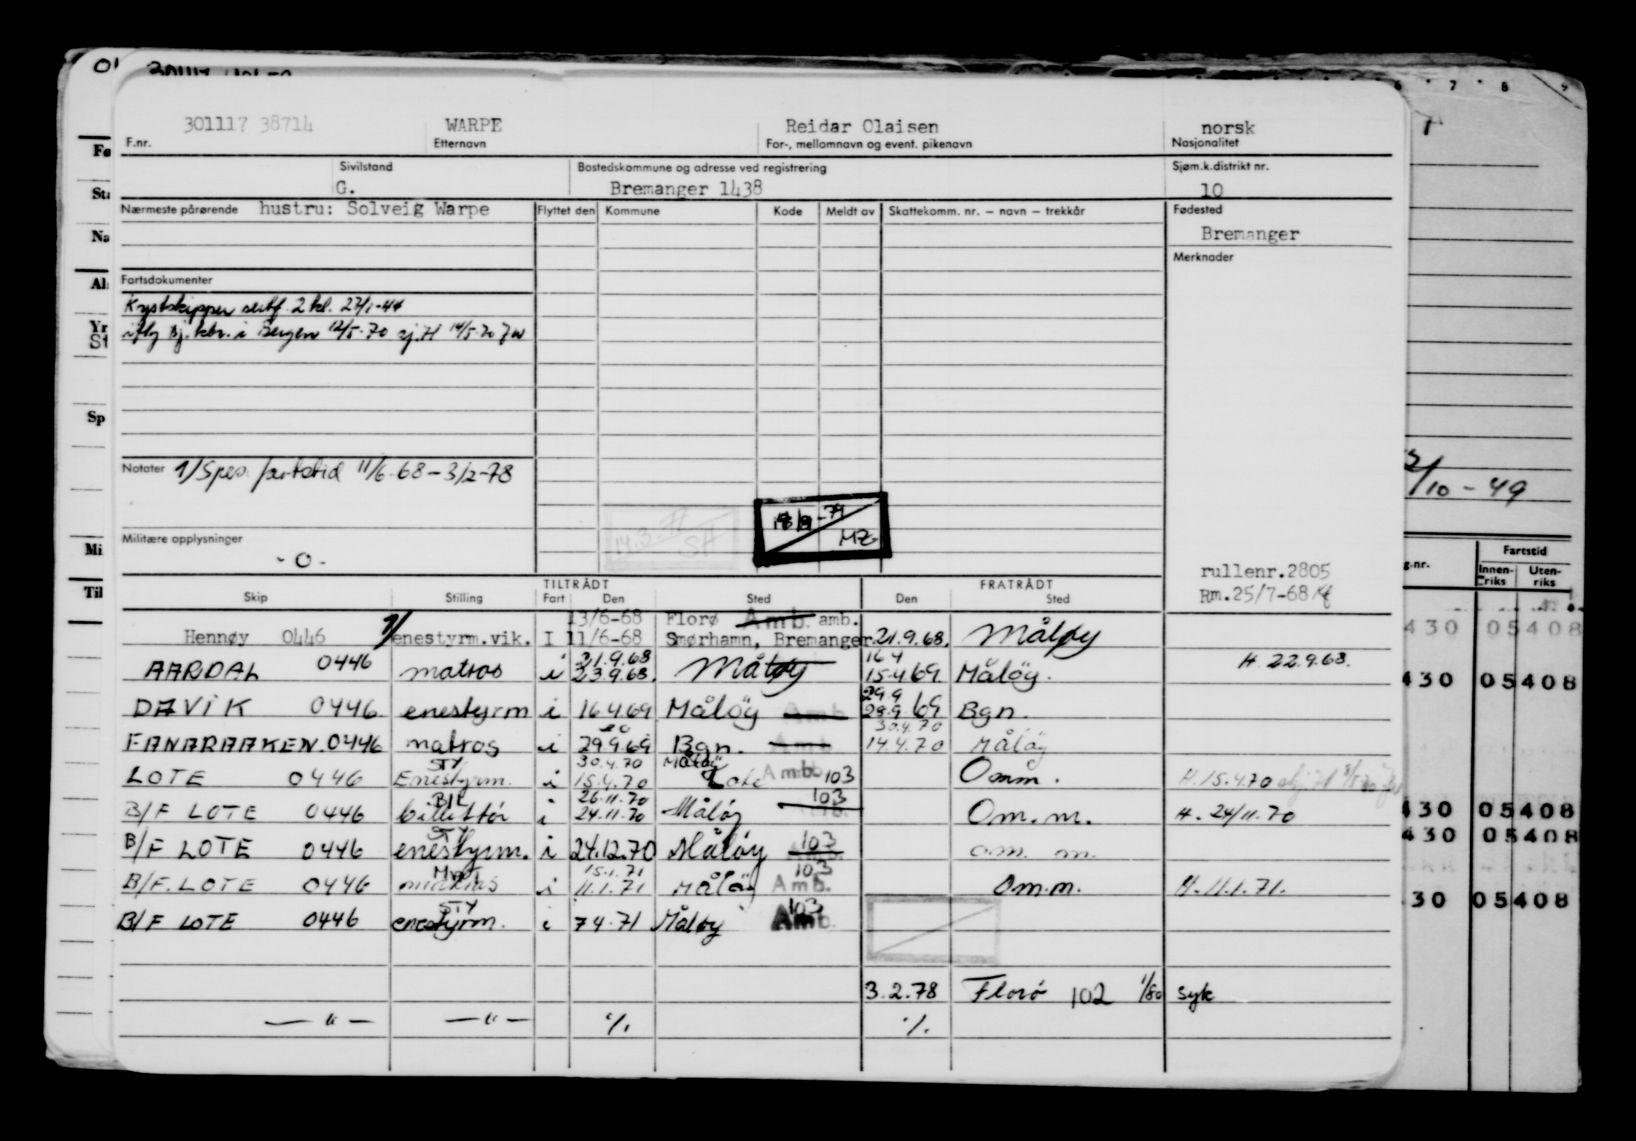 301117 38714 WARPE Reidar Olaisen norsk
F.nr. Etternavn For-, mellomnavn og event. pikenavn Nasjonalitet
Sivilstand Bostedskommune og adresse ved registrering Sjøm.k.distrikt nr.
G. Bremanger 1438 10
Nærmeste pårørende hustru: Solveig Warpe Flyttet den Kommune Kode Meldt av Skattekomm. nr. – navn – trekkår Fødested
Bremanger
Merknader
Fartsdokumenter
Kystskipper sertf. 2 kl. 27/1-44
i Bergen 12/5-70 14/5-70
Notater 1/ Spes. fartstid 11/6-68 – 3/2-78
14.3.77 SH
-79 MZ
Militære opplysninger
- O -
rullenr.2805
Rm.25/7-68
TILTRÅDT FRATRÅDT
Skip Stilling Fart Den Sted Den Sted
13/6-68 Florø Amb. amb.
Hennøy 0446 1/ enestyrm.vik. I 11/6-68 Smørhamn, Bremanger 21.9.68. Måløy
21.9.68 16 4
AARDAL 0446 matros i 23.9.68. Måløy 15.4.69 Måløy. H 22.9.68.
29.9
DAVIK 0446 enestyrm i 16.4.69 Måløy Amb. 28.9.69 Bgn.
30.4.70
FANARAAKEN. 0446 matros i 29.9.69 Bgn. Amb. 14.4.70 Måløy
STY 30.4.70 Måløy
LOTE 0446 Enestyrm. i 15.4.70 Lote Amb. 103 Omm. H. 15.4.70
Bil 26.11.70 103
B/F LOTE 0446 billettør i 24.11.70 Måløy Om.m. H. 24/11.70
STY 103
B/F LOTE 0446 enestyrm. i 24.12.70 Måløy om. m.
Mat 15.1.71 103
B/F. LOTE 0446 matros i 11.1.71 Måløy Amb. Om.m. H. 11.1.71.
STY 103
B/F LOTE 0446 enestyrm. i 7.4.71 Måløy Amb.
3.2.78 Florø 102 1/80 syk
— " — — " — ·/. ·/.
Fø
Sta
Na
Al
Yr
St
Sp
Mi
Til
6 7 8 9
/10 - 49
g.nr. Fartstid
Innenriks Utenriks
430 05408
430 05408
430 05408
430 05408
30 05408